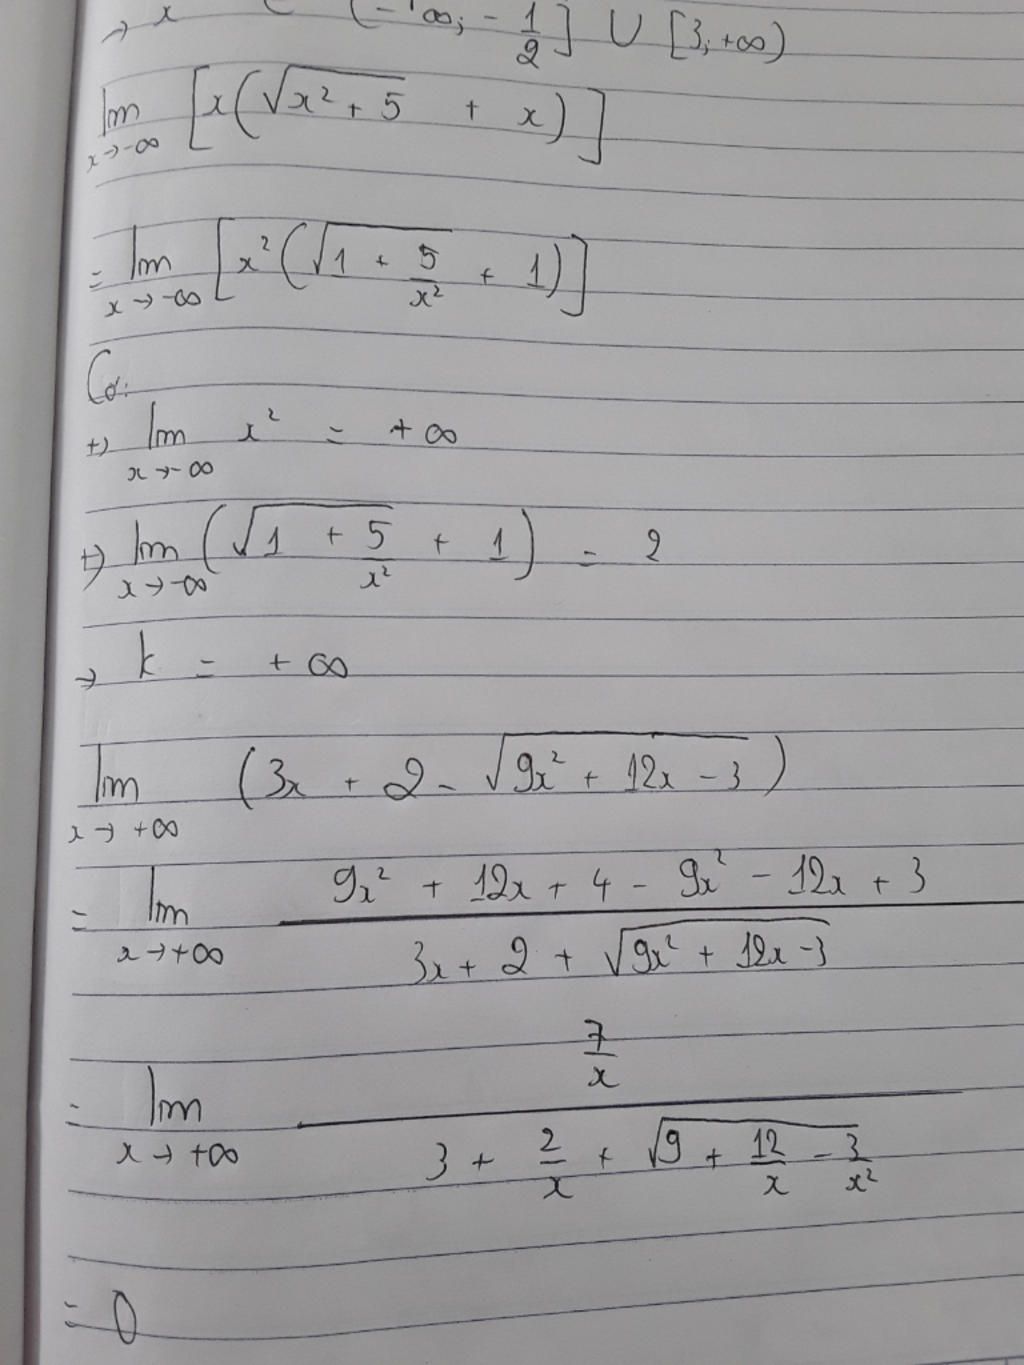 → x ∈ (-∞; -1/2] ∪ [3; +∞)
lim x→-∞ [x(√(x² + 5) + x)]
= lim x→-∞ [x²(√(1 + 5/x²) + 1)]
Có:
+) lim x→-∞ x² = +∞
+) lim x→-∞ (√(1 + 5/x²) + 1) = 2
→ k = +∞
lim x→+∞ (3x + 2 - √(9x² + 12x - 3))
= lim x→+∞ (9x² + 12x + 4 - 9x² - 12x + 3)/(3x + 2 + √(9x² + 12x - 3))
= lim x→+∞ (7/x)/(3 + 2/x + √(9 + 12/x - 3/x²))
= 0